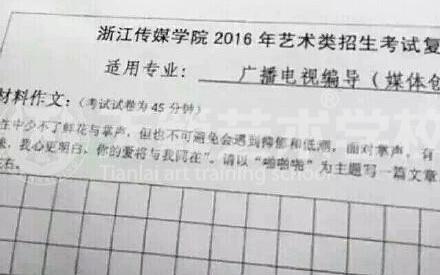 浙江传媒学院 2016 年艺术类招生考试复
适用专业： 广播电视编导（媒体创
材料作文：（考试试卷为 45 分钟）
生中少不了鲜花与掌声，但也不可避免会遇到掩郁和低潮，面对掌声，有
我心更明白，你的爱将与我同在"。请以"啪啪啪"为主题写一篇文章
左右。
艺术学校
Tianlai art training school